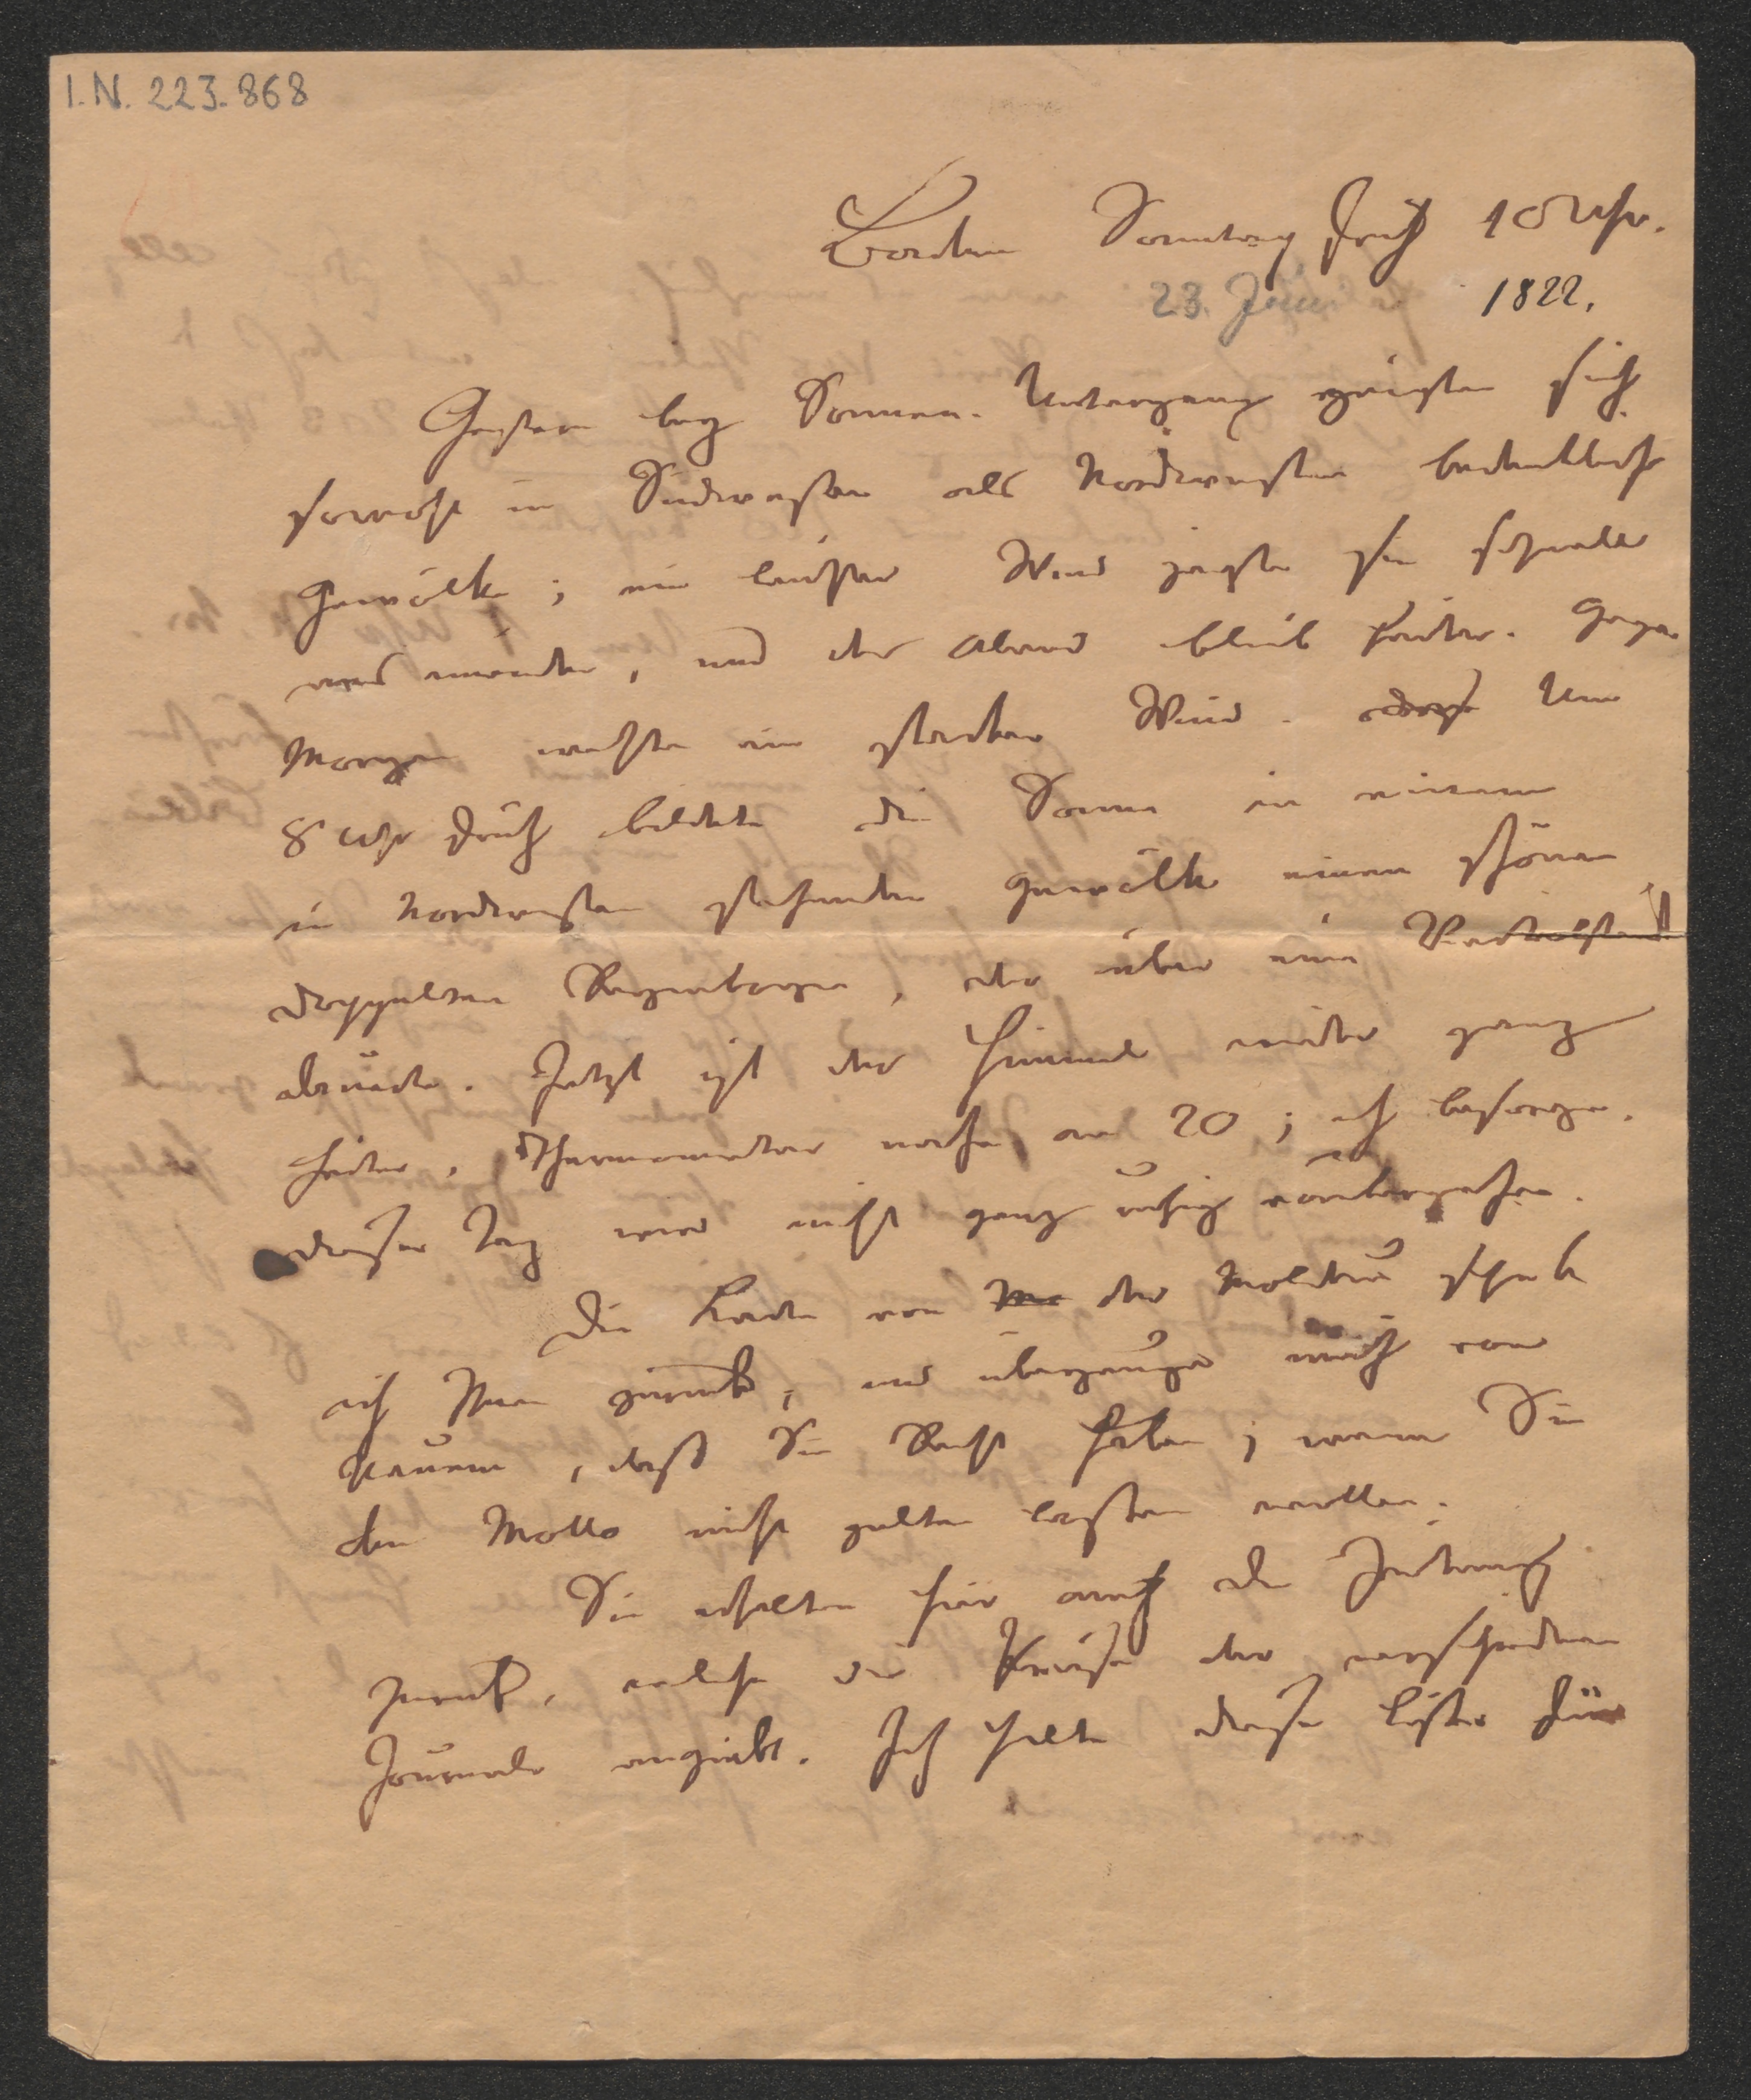 I.N. 223.868
Baden Sonntag Früh 10 Uhr.
23. Juni 1822.
Gestern bey Sonnen-Untergang zeigten sich
sowohl in Südwesten als Nordwesten bedenkliche
Gewölke; ein leichter Wind jagte sie schnell
aus einander, und der Abend blieb heiter. Gegen
Morgen wehte ein starker Wind. Um
8 Uhr Früh bildete die Sonne in einem
in Nordwesten stehenden Gewölke einen schönen
doppelten Regenbogen, der über eine Viertelstund
dauerte. Jetzt ist der Himmel wieder ganz
heiter, Thermometer nahe an 20; ich besorge,
dieser Tag wird nicht ganz ruhig vorübergehen.
Die Karte von der Moldau schicke
ich Ihnen zurück, und überzeuge mich von
neuem, daß Sie Recht haben; wenn Sie
den Motto nicht gelten lassen wollen.
Sie erhalten hier auch die Zeitung
zurück, welche die Preise der verschiedenen
Journale angiebt. Ich halte diese Liste für